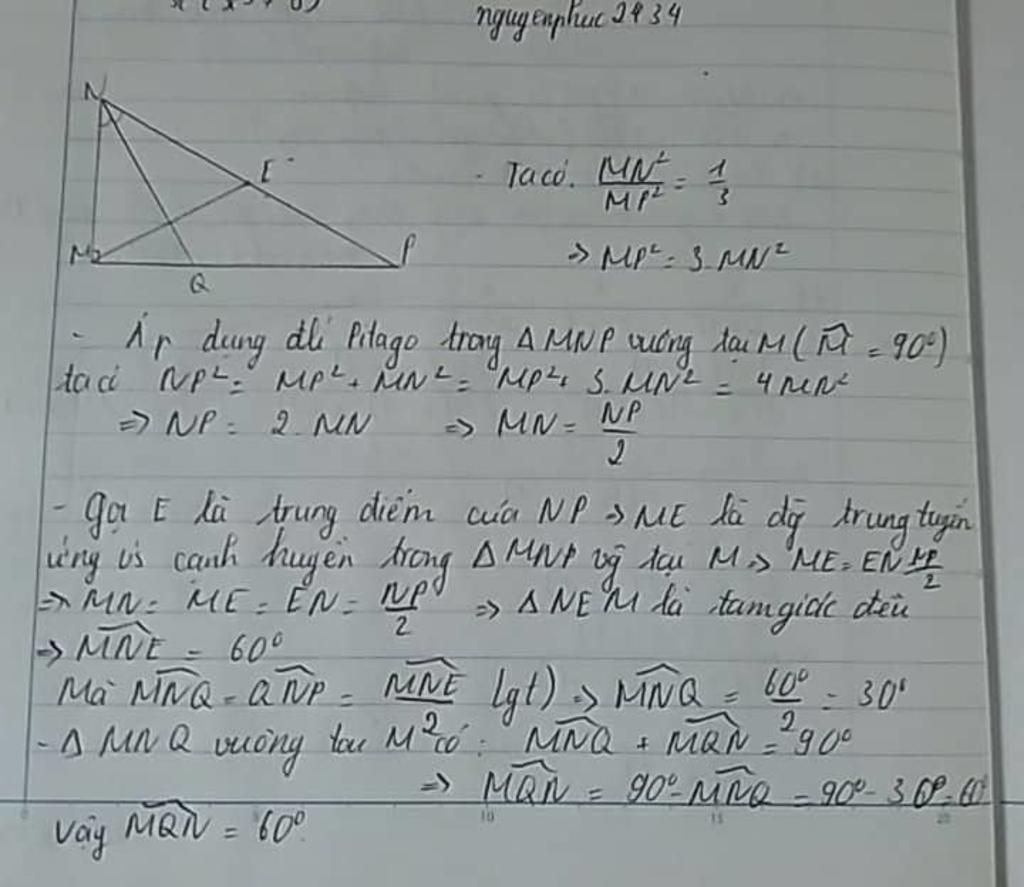 nguyenphuc2434
N
E
M
Q
P
- Ta có. MN²/MP² = 1/3
=> MP² = 3.MN²
- Áp dụng đlí Pitago trong ΔMNP vuông tại M (M̂ = 90°)
ta có NP² = MP² + MN² = MP² + 3.MN² = 4MN²
=> NP = 2.MN => MN = NP/2
- Gọi E là trung điểm của NP => ME là đg trung tuyến
ứng vs cạnh huyền trong ΔMNP vg tại M => ME = EN = NP/2
=> MN = ME = EN = NP/2 => ΔNEM là tam giác đều
=> MNE = 60°
Mà MNQ = QNP = MNE/2 (gt) => MNQ = 60°/2 = 30°
- ΔMNQ vuông tại M có: MNQ + MQN = 90°
=> MQN = 90° - MNQ = 90° - 30° = 60
Vậy MQN = 60°.
10
15
20